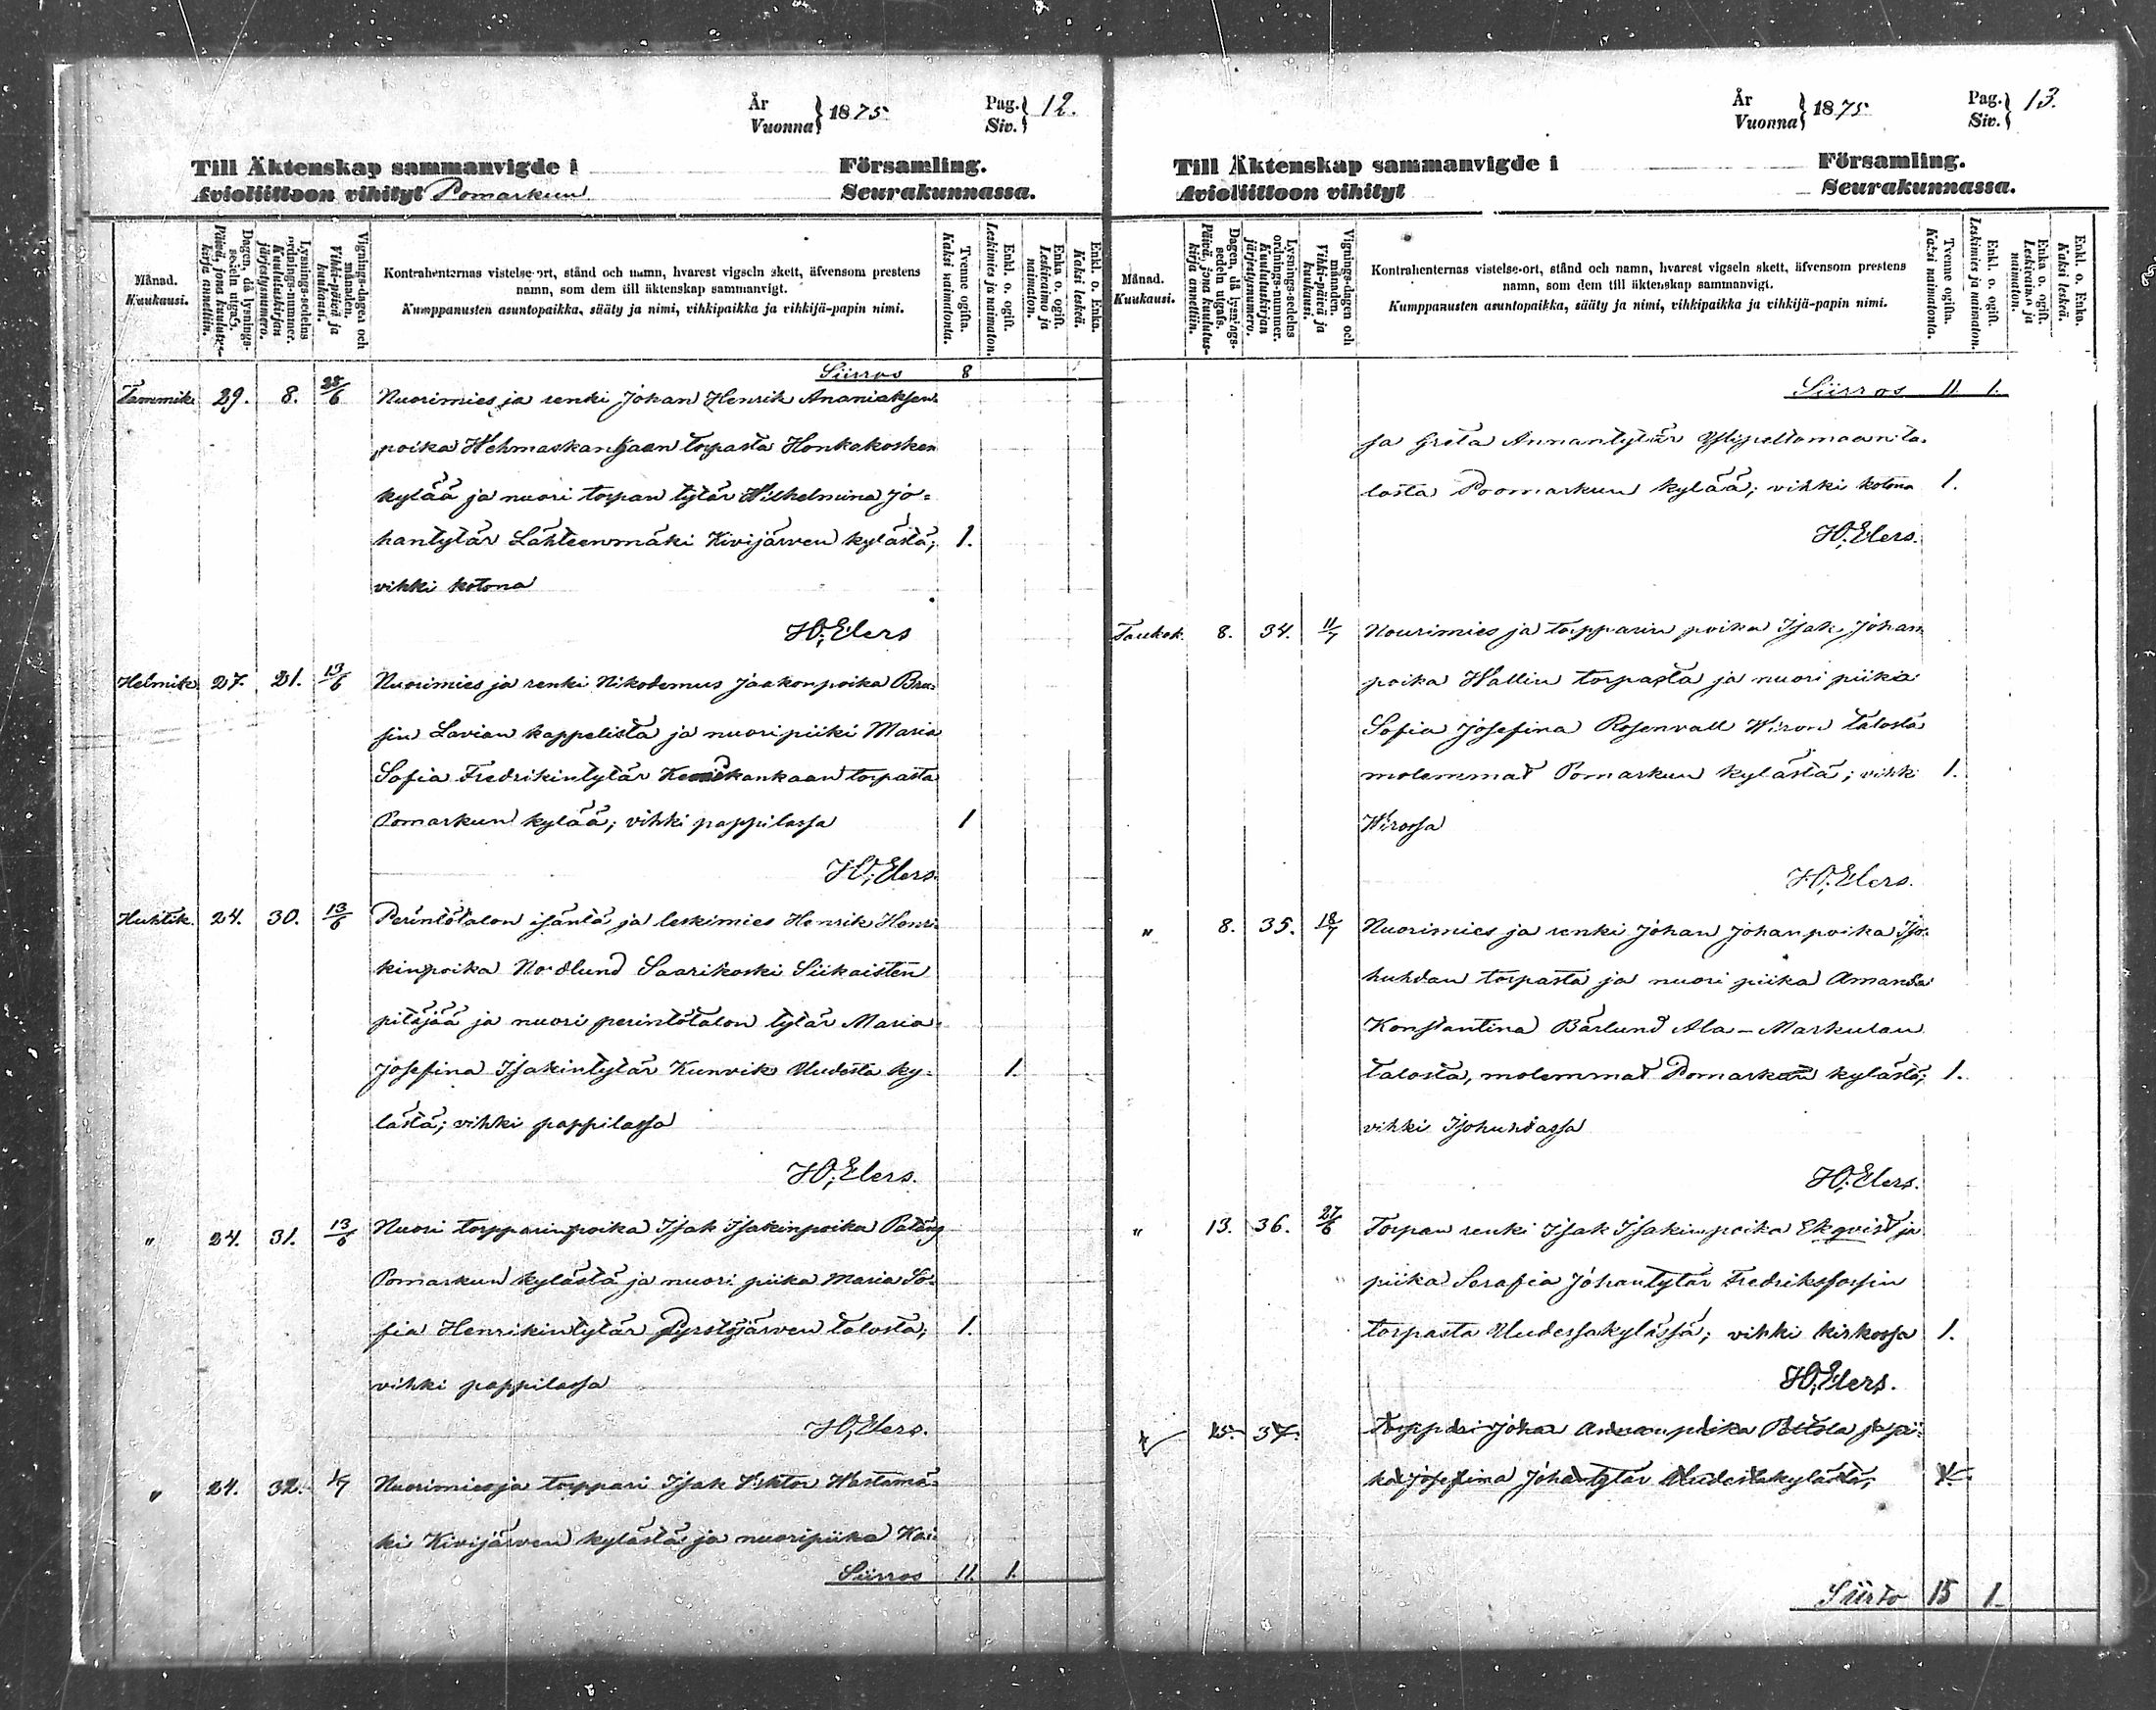 År
Vuonna } 1875
Pag.
Siv. } 12.
Till Äktenskap sammanvigde i Församling.
Avioliittoon vihityt Pomarkun Seurakunnassa.
Månad.
Kuukausi.
Dagen, då lysnings-
sedeln utgafs.
Päivä, jona kuulutus-
kirja annettiin.
Lysnings-sedelns
ordnings-nummer.
Kuulutuskirjan
järjestysnumero.
Vignings-dagen och
månaden.
Vihki-päivä ja
kuukausi.
Kontrahenternas vistelse-ort, stånd och namn, hvarest vigseln skett, äfvensom prestens
namn, som dem till äktenskap sammanvigt.
Kumppanusten asuntopaikka, sääty ja nimi, vihkipaikka ja vihkijä-papin nimi.
Tvenne ogifta.
Kaksi naimatonta.
Enkl. o. ogift.
Leskimies ja naimaton.
Enka o. ogift.
Leskivaimo ja
naimaton.
Enkl. o. Enka.
Kaksi leskeä.
Siirros 8
Tammik. 29. 8. 25/6 Nuorimies ja renki Johan Henrik Ananiaksen
poika Hehmaskankaan torpasta Honkakosken
kylää ja nuori torpan tytär Wilhelmina Jo-
hantytär Lähteenmäki Kivijärven kylästä; 1.
vihki kotona
H; Elers
Helmik. 27. 21. 13/6 Nuorimies ja renki Nikodemus Jaakonpoika Bra-
sin Lavian kappelista ja nuori piiki Maria
Sofia Fredrikintytär kankaan torpasta
Pomarkun kylää; vihki pappilassa 1
H; Elers.
Huhtik. 24. 30. 13/6 Perintötalon isäntä ja leskimies Henrik Henri-
kinpoika Nordlund Saarikoski Siikaisten
pitäjää ja nuori perintötalon tytär Maria
Josefina Isakintytär Kunvik Uudesta ky- 1.
lästä; vihki pappilassa
H; Elers.
" 24. 31. 13/6 Nuori torpparinpoika Isak Isakinpoika Patäng
Pomarkun kylästä ja nuori piika Maria So-
fia Henrikintytär Pyrstöjärven talosta; 1.
vihki pappilassa
H; Elers.
" 24. 32. 4/7 Nuorimies ja torppari Isak Viktor Wastamä-
ki Kivijärven kylästä ja nuoripiika Kai-
Siirros 11. 1.
År
Vuonna } 1875
Pag.
Siv. } 13.
Till Äktenskap sammanvigde i Församling.
Avioliittoon vihityt Seurakunnassa.
Månad.
Kuukausi.
Dagen, då lysnings-
sedeln utgafs.
Päivä, jona kuulutus-
kirja annettiin.
Lysnings-sedelns
ordnings-nummer.
Kuulutuskirjan
järjestysnumero.
Vignings-dagen och
månaden.
Vihki-päivä ja
kuukausi.
Kontrahenternas vistelse-ort, stånd och namn, hvarest vigseln skett, äfvensom prestens
namn, som dem till äktenskap sammanvigt.
Kumppanusten asuntopaikka, sääty ja nimi, vihkipaikka ja vihkijä-papin nimi.
Tvenne ogifta.
Kaksi naimatonta.
Enkl. o. ogift.
Leskimies ja naimaton.
Enka o. ogift.
Leskivaimo ja
naimaton.
Enkl. o. Enka.
Kaksi leskeä.
Siirros 11 1.
sa Greta Annantytär Ylipeltomaan ta-
losta Poomarkun kylää; vihki kotona 1.
H; Elers.
Toukok. 8. 34. 11/7 Nourimies ja torpparin poika Isak Johan
poika Hallin torpasta ja nuori piika
Sofia Josefina Rosenvall Wiron talosta
molemmat Pomarkun kylästä; vihki 1.
Wirossa
H; Elers.
" 8. 35. 18/7 Nuorimies ja renki Johan Johanpoika Iso-
huhdan torpasta ja nuori piika Amanda
Konstantina Bärlund Ala-Markulan
talosta, molemmat Pomarkun kylästä; 1.
vihki Isohuhdassa
H; Elers.
" 13. 36. 27/6 Torpan renki Isak Isakinpoika Ekqvist ja
piika Serafia Johantytär Fredrikssonin
torpasta Uudessakylässä; vihki kirkossa 1.
H; Elers.
15. 37. Torppari Johan poika ja pii-
ka Josefina Johantytär Uudestakylästä; 1.
Siirto 15 1